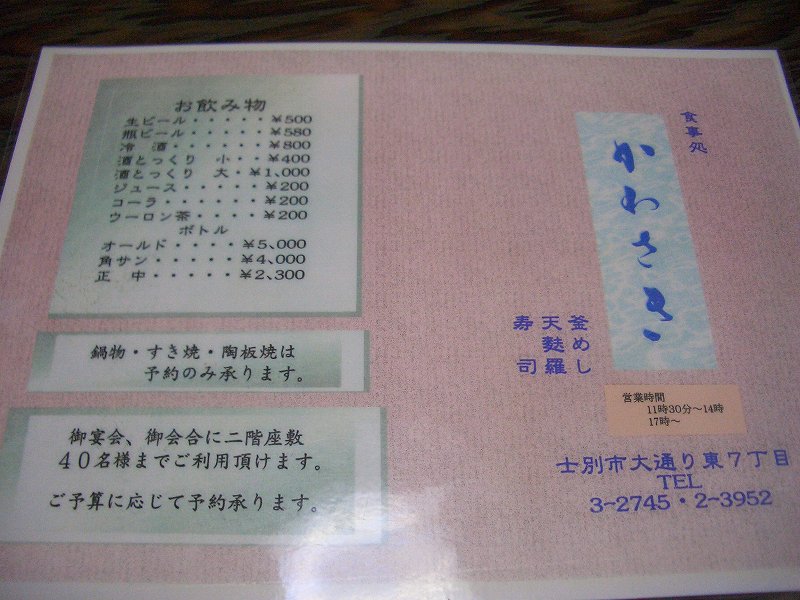 お飲み物
生ビール・・・・・¥500
瓶ビール・・・・・¥580
冷　酒・・・・・・¥800
酒とっくり　小・・¥400
酒とっくり　大・¥1,000
ジュース・・・・・¥200
コーラ・・・・・・¥200
ウーロン茶・・・・¥200
ボトル
オールド・・・・¥5,000
角サン・・・・・¥4,000
正　中・・・・・¥2,300
鍋物・すき焼・陶板焼は
予約のみ承ります。
御宴会、御会合に二階座敷
４０名様までご利用頂けます。
ご予算に応じて予約承ります。
食事処
かわさき
釜めし
天麩羅
寿司
営業時間
11時30分～14時
17時～
士別市大通り東７丁目
TEL
3-2745・2-3952